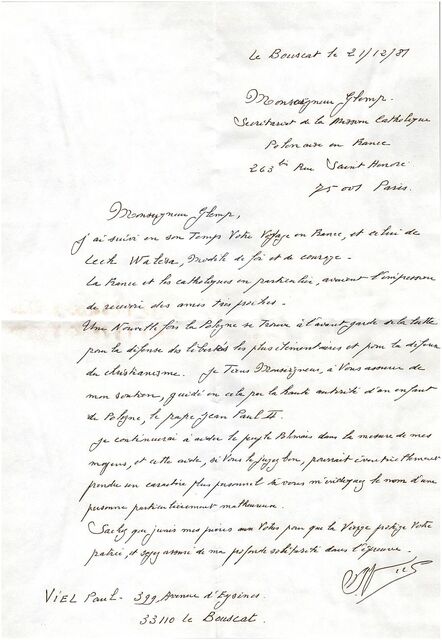 Le Bouscat le 21/12/81
Monseigneur Glemp.
Secrétariat de la Mission Catholique
Polonaise en France
263 bis Rue Saint Honoré
75 001 Paris.
Monseigneur Glemp,
J'ai suivi en son Temps Votre Voyage en France, et celui de
Lech Walesa, modèle de foi et de courage.
La France et les catholiques en particulier, avaient l'impression
de recevoir des amis très proches.
Une Nouvelle fois la Pologne se trouve à l'avant-garde de la lutte
pour la défense des libertés les plus élémentaires et pour la défense
du christianisme. Je Tiens Monseigneur, à Vous assurer de
mon soutien, guidé en cela par la haute autorité d'un enfant
de Pologne, le pape Jean Paul II.
Je continuerai à aider le peuple Polonais dans la mesure de mes
moyens, et cette aide, si Vous le jugez bon, pourrait éventuellement
prendre un caractère plus personnel si vous m'indiquez le nom d'une
personne particulièrement malheureuse.
Sachez que j'unis mes prières aux Vôtres pour que la Vierge protège Votre
patrie, et soyez assuré de ma profonde solidarité dans l'épreuve.
VIEL Paul - 399, Avenue d'Eysines
33110 Le Bouscat.